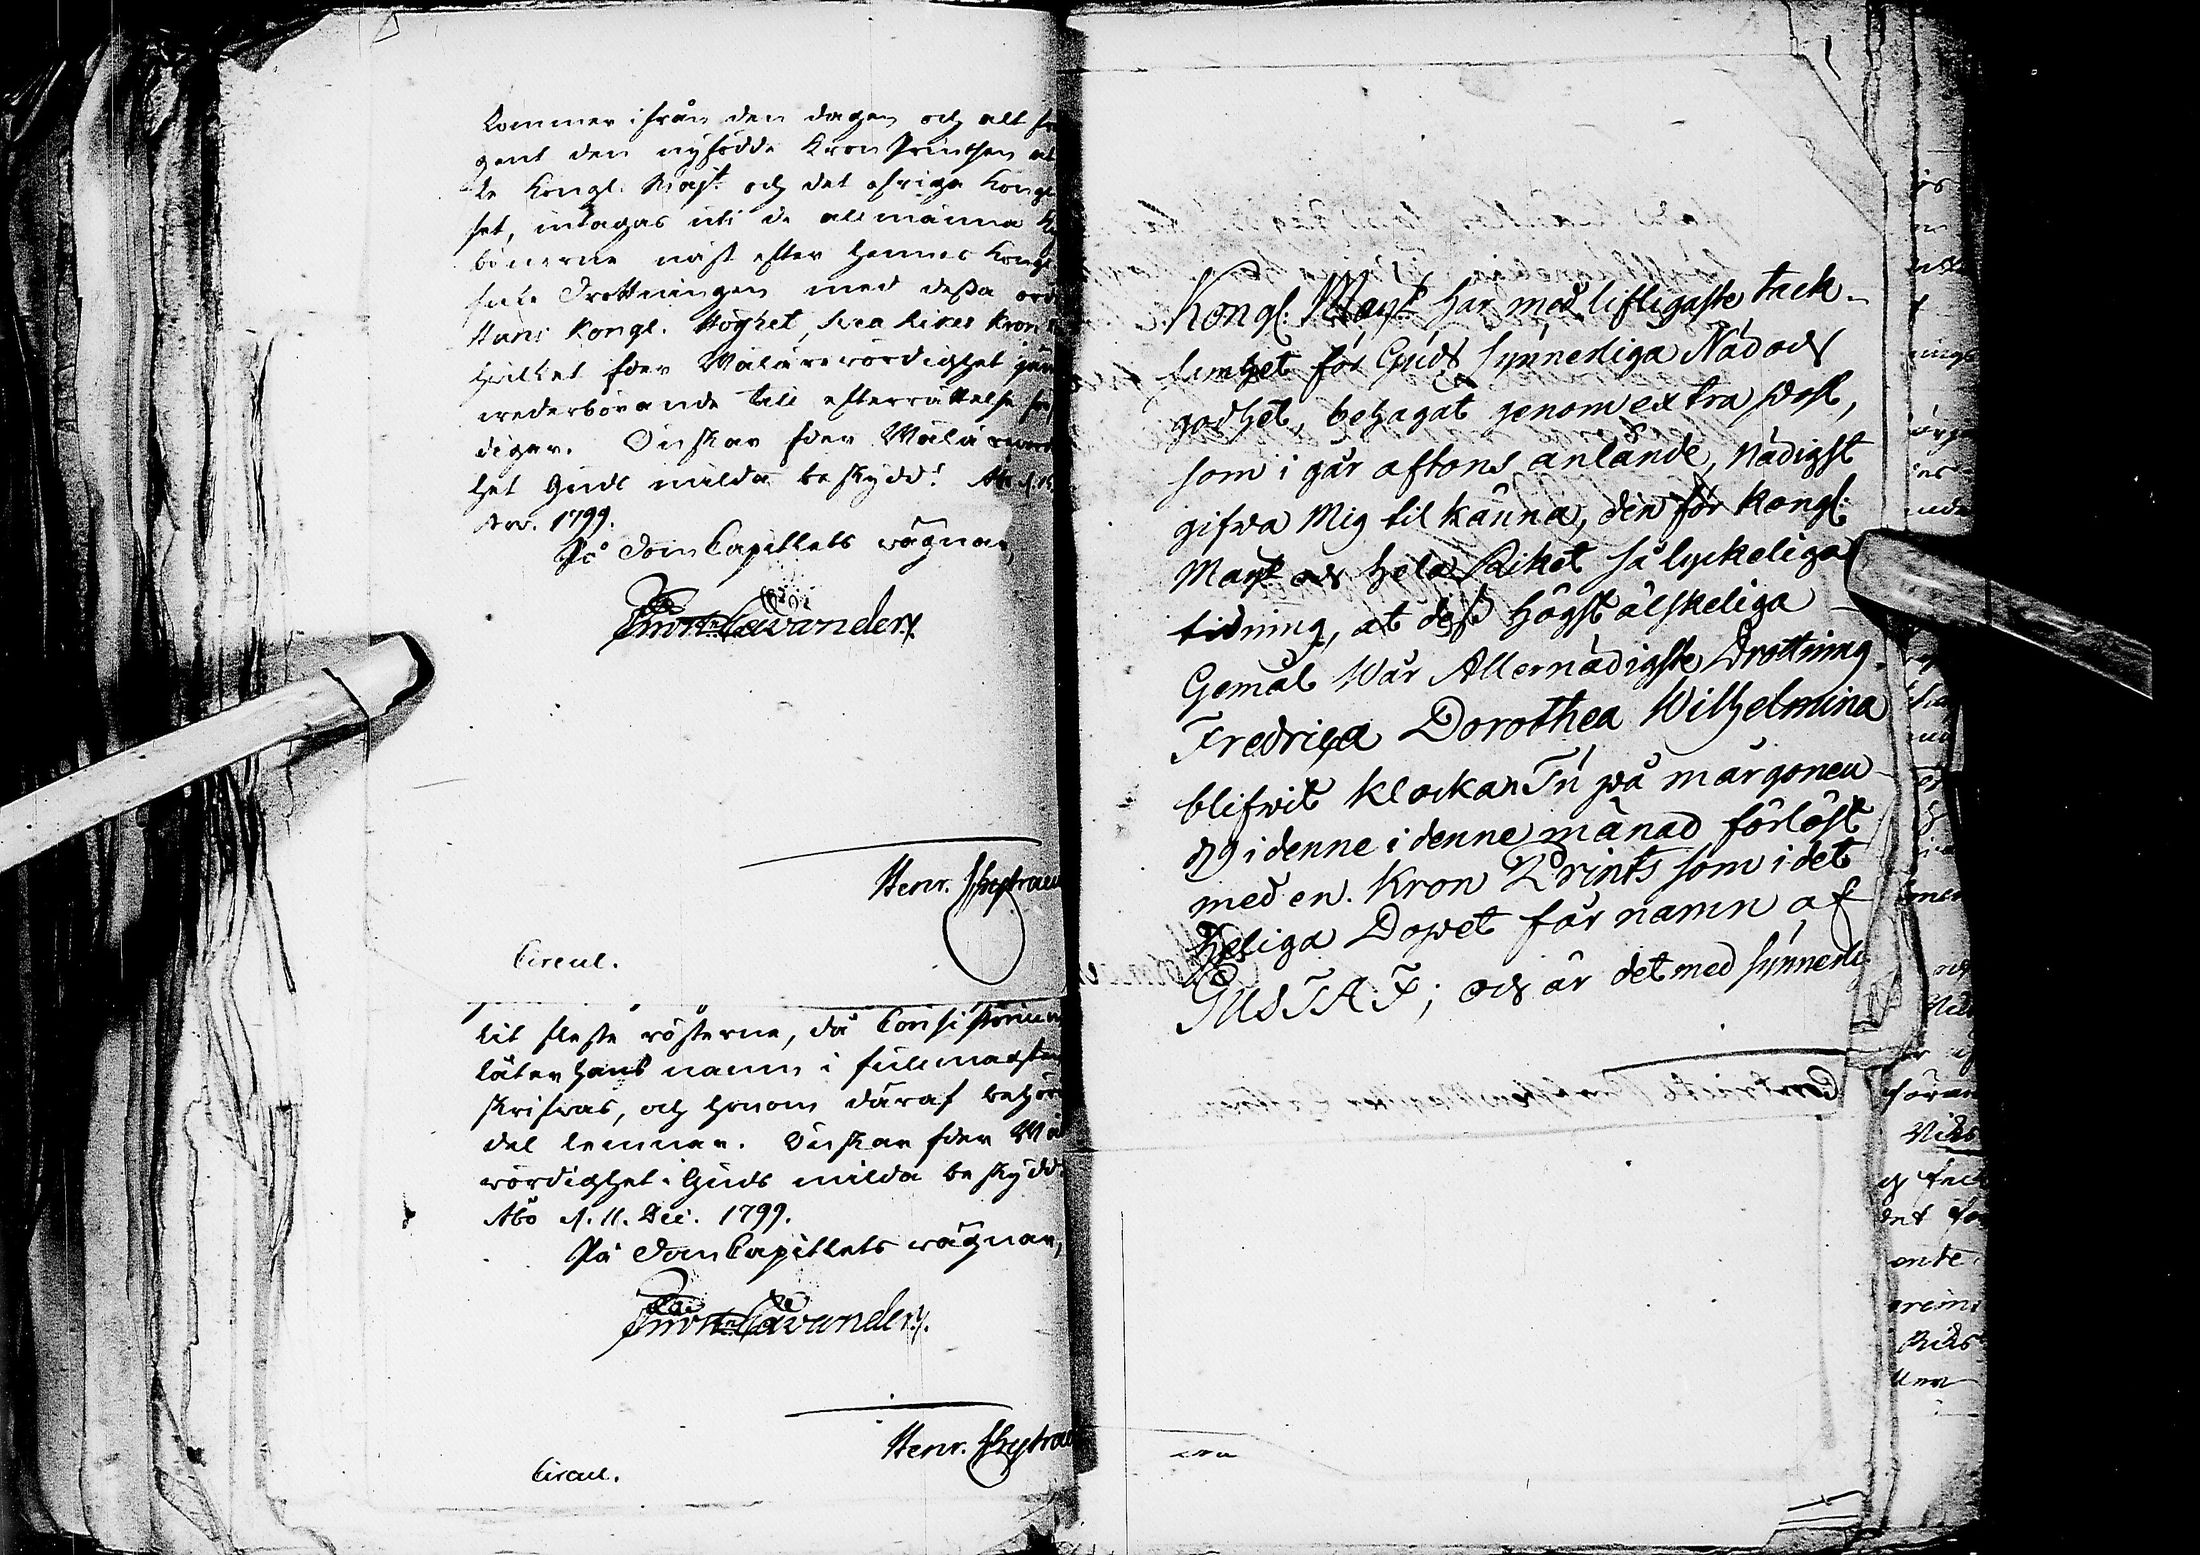 kommer ifrån den dagen och alt
gent den nyfödde Kron Printsen
de Kongl. Maj:t och det öfriga Kongl
set, intagas uti de allmänna
bönerne näst efter Hennes Kongl
Drottningen med dessa ord
Hans Kongl. Höghet, Svea Rikes Kron
hvilket Eder Wälärewördighet
wederbörande till efterrättelse
diger. Önskar Eder Wäläre
het Guds milda beskydd!
Nov. 1799.
På DomCapitlets wägnar,
Cavander.
Henr.
Circul.
til fleste rösterne, då Consistorium
låter hans namn i fullmagten
skrifvas, och honom däraf behörig
del lemnar. Önskar Eder
wördighet Guds milda beskydd.
Åbo d. 11. Dec. 1799.
På DomCapitlets wägnar,
Cavander.
Henr.
Circul.
Kongl. Maj:t har med lifligaste tack-
samhet för Guds synnerliga Nåd och
godhet, behagat genom extra Post,
som i går aftons anlände, Nådigst
gifwa Mig til känna, den för Kongl.
Maj:t och hela Riket så lyckeliga
tidning, at dess högst älskeliga
Gemål Wår Allernådigste Drottning
Fredrica Dorothea Wilhelmina
blifwit klockan Tu på morgonen
d 9 i denne i denne månad förlöst
med en Kron Prints som i det
Heliga Dopet får namn af
GUSTAF; och är det med synnerli